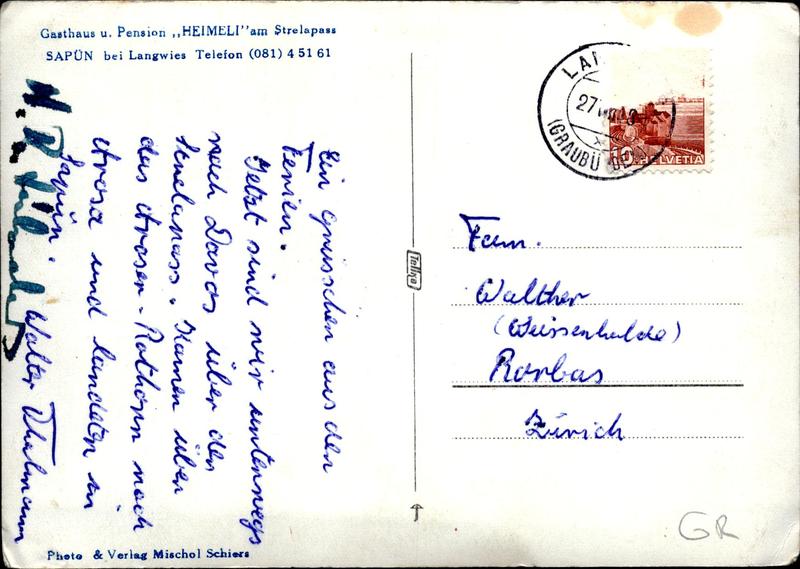 Gasthaus u. Pension „HEIMELI" am Strelapass
SAPÜN bei Langwies Telefon (081) 4 51 61
Ein grüsschen aus den
Ferien.
Jetzt sind wir unterwegs
nach Davos über den
Strelapass. Kamen über
das Aroser-Rothorn nach
Arosa und landeten in
Sapün.
Walter Thalmann
Photo & Verlag Mischol Schiers
Tellko
LAN
27
(GRAUBÜNDEN)
10
HELVETIA
Fam.
Walther
(Weissenhalde)
Rorbas
Zürich
GR